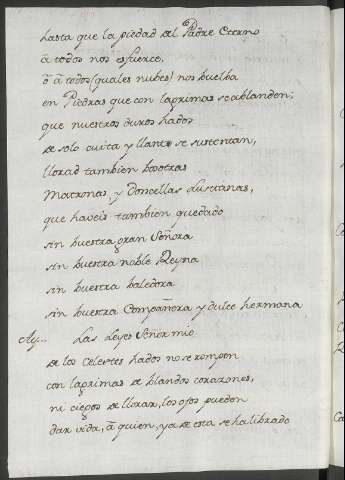 hasta que la piedad del Padre Eterno
â todos nos esfuerce,
ô â todos (quales nubes) nos buelba
en Piedras que con lagrimas se ablanden:
que nuestros duros hados
de solo cuita y llanto se sustentan,
llorad tambien bosotras
Matronas, y Doncellas Lusitanas,
que haveis tambien quedado
sin buestra gran Señora
sin buestra noble Reyna
sin buestra baledora
sin buestra Compañera y dulce hermana
Ay.. Las leyes Señor mio
de los Celestes hados no se rompen
con lagrimas de blandos corazones,
ni ciegos de llorar, los ojos pueden
dar vida, â quien, ya de esta se ha librado